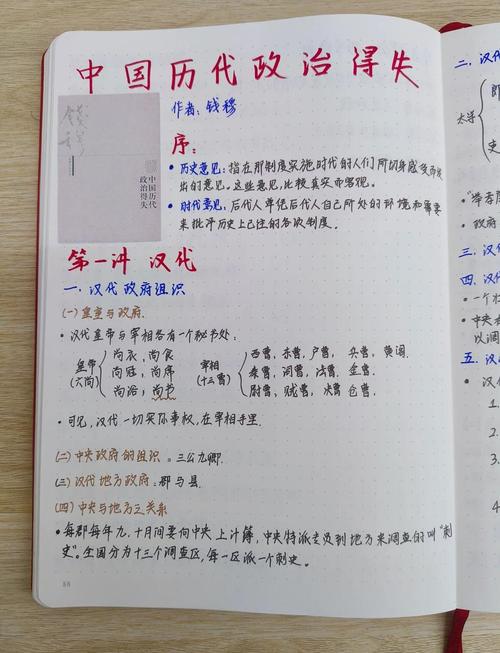 中国历代政治得失
钱穆
中国历代
政治得失
作者：钱穆
序：
• 历史意见：指在那制度实施时代的人们所切身感受而发
出的意见。这些意见，比较真实而客观。
• 时代意见：后代人单凭后代人自己所处的环境和需要
来批评历史上已往的各项制度。
第一讲 汉代
一、汉代政府组织
(一) 皇室与政府.
• 汉代皇帝与宰相各有一个秘书处：
皇帝
(六尚)
尚衣，尚食
尚冠，尚席
尚浴，尚书
宰相
(十三曹)
西曹，东曹，户曹，
奏曹，词曹，法曹，
尉曹，贼曹，决曹
兵曹，黄阁.
金曹.
仓曹.
• 可见，汉代一切实际事权，在宰相手里.
(二) 中央政府的组织：三公九卿.
(三) 汉代地方政府：郡与县.
(四) 中央与地方之关系
• 每郡每年九、十月间要向中央上计簿，中央特派专员到地方来调查的叫“刺
史”。全国分为十三个调查区，每一区派一个刺史。
88
二、汉代
太学
郎
吏
“举孝
• 政府
三、汉代
四、汉代
• 一个
• 中央
以调
五、汉
1.
2.
3.
4